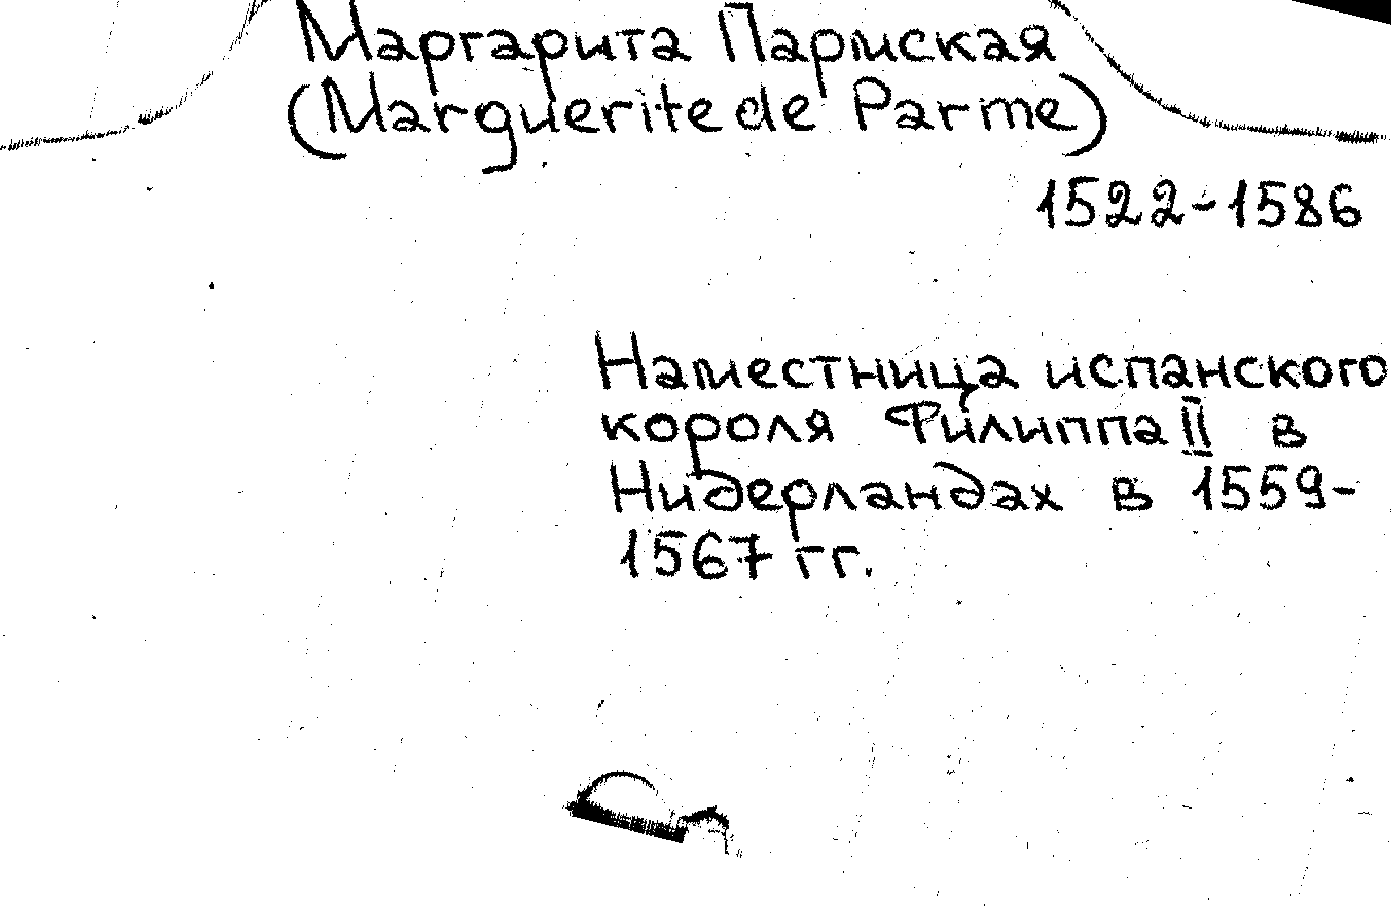 Маргарита Пармская
(Marguerite de Parme)
1522-1586
Наместница испанского
короля Филиппа II в
Нидерландах в 1559-
1567 гг.